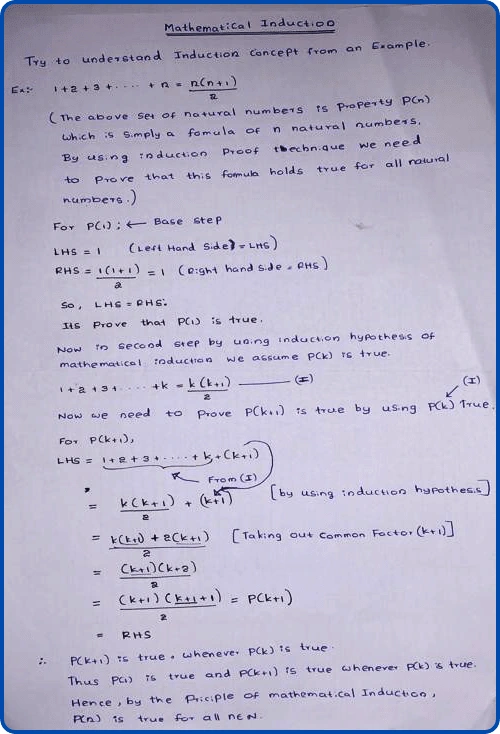 Mathematical Induction
Try to understand Induction Concept from an Example.
Ex:- 1+2+3+.....+n = n(n+1)/2
(The above set of natural numbers is property P(n)
which is simply a fomula of n natural numbers.
By using induction Proof thechnique we need
to prove that this fomula holds true for all natural
numbers.)
For P(1); ← Base step
LHS = 1 (Left Hand Side) = LHS)
RHS = 1(1+1)/2 = 1 (Right hand side = RHS)
So, LHS = RHS.
Its Prove that P(1) is true.
Now in second step by using induction hypothesis of
mathematical induction we assume P(k) is true.
1+2+3+.....+k = k(k+1)/2 —— (I)
(I)
Now we need to prove P(k+1) is true by using P(k) True.
For P(k+1),
LHS = 1+2+3+.....+k+(k+1)
From (I)
= k(k+1)/2 + (k+1) [by using induction hypothesis]
= k(k+1) + 2(k+1)/2 [Taking out common Factor (k+1)]
= (k+1)(k+2)/2
= (k+1)(k+1+1)/2 = P(k+1)
= RHS
∴ P(k+1) is true, whenever P(k) is true.
Thus P(1) is true and P(k+1) is true whenever P(k) is true.
Hence, by the Priciple of mathematical Induction,
P(n) is true for all n∈N.